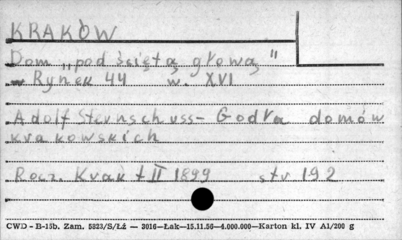 KRAKÓW
Dom „pod świętą głową"
Rynek 44 w. XVI
Adolf Sternschuss - Godła domów
krakowskich
Rocz. Krak t II 1899 str 192
CWD - B-15b. Zam. 5823/S/Łź — 3016—Łak—15.11.56—4.000.000—Karton kl. IV A1/200 g